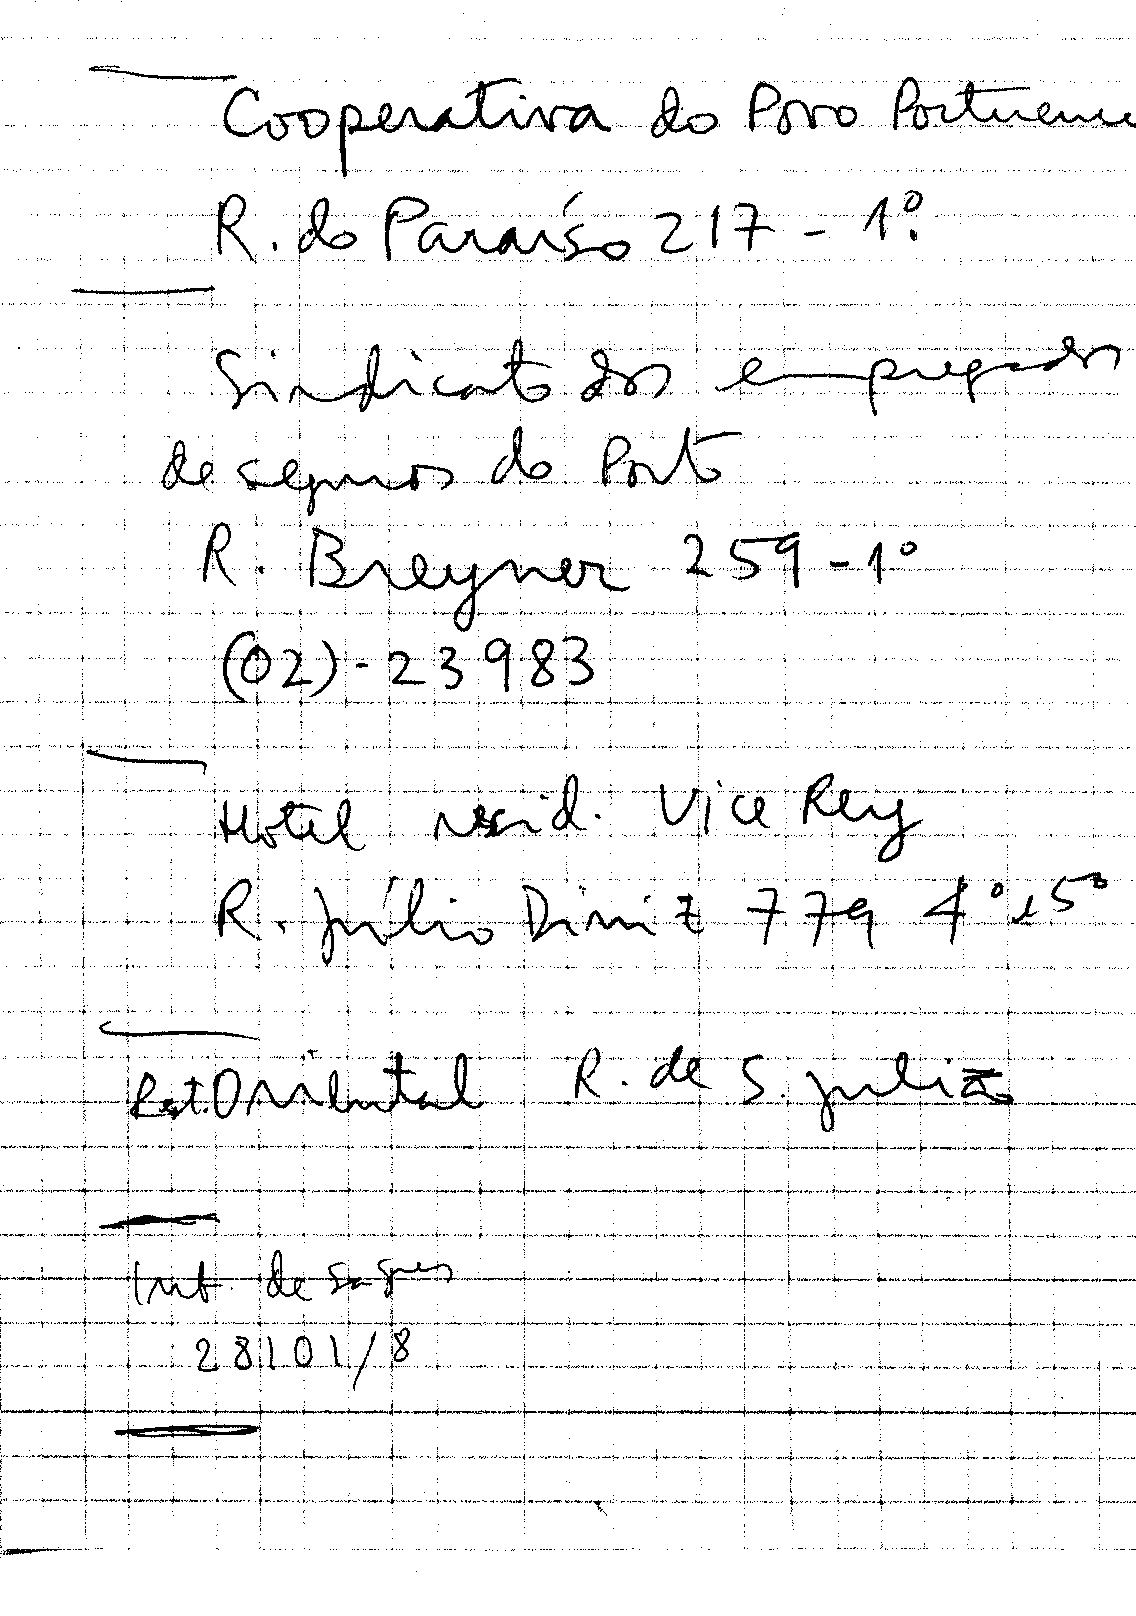 Cooperativa do Povo Portuense
R. do Paraíso 217 - 1º.
Sindicato dos empregados
de seguros do Porto
R. Breyner 259 - 1º
(02) - 23983
Hotel resid. Vice Rey
R. Júlio Diniz 779 4º e 5º
Rest. Oriental R. de S. Julião
de Sagres
28101/8